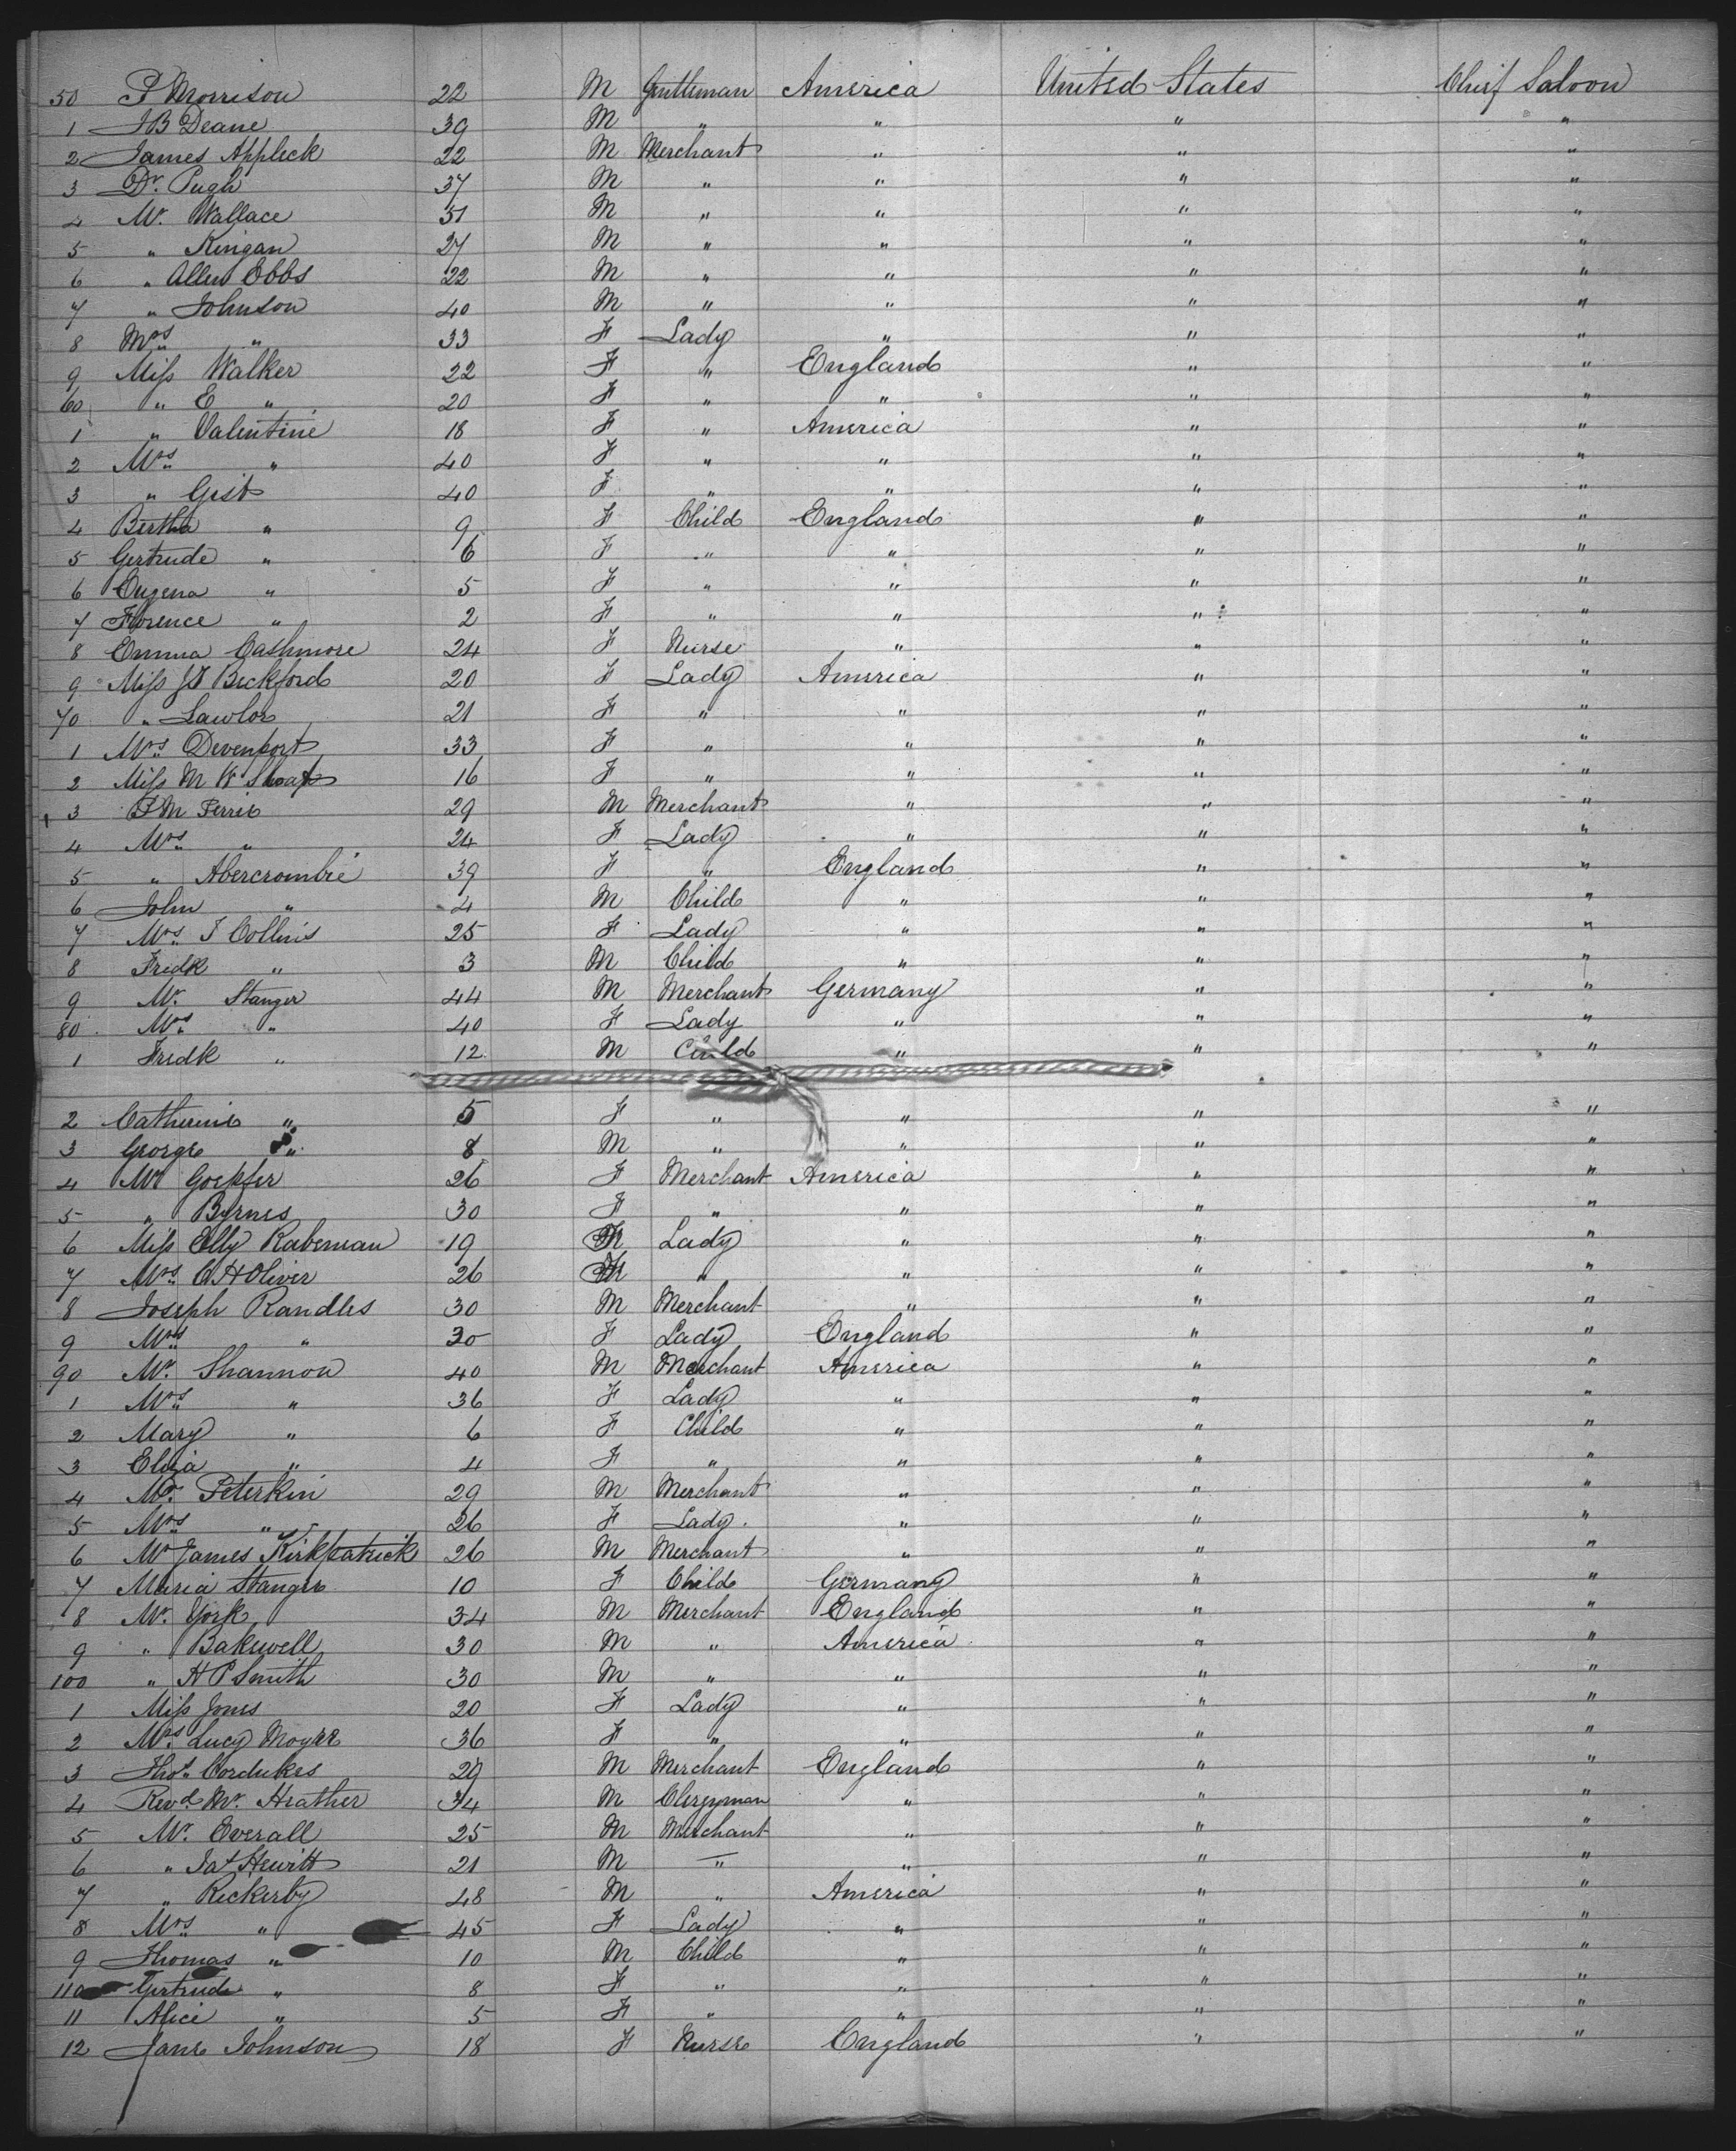 50 P Morrison 22 M Gentleman America United States Chief Saloon
1 J B Deane 39 M " " " "
2 James Appleck 22 M Merchant " " "
3 Dr. Pugh 37 M " " " "
4 Mr. Wallace 51 M " " " "
5 " Kingan 27 M " " " "
6 " Allen Ebbs 22 M " " " "
7 " Johnson 40 M " " " "
8 Mrs. " 33 F Lady " " "
9 Miss Walker 22 F " England " "
60 " E " 20 F " " " "
1 " Valentine 18 F " America " "
2 Mrs. " 40 F " " " "
3 " Gist 40 F " " " "
4 Bertha " 9 F Child England " "
5 Gertrude " 6 F " " " "
6 Eugena " 5 F " " " "
7 Florence " 2 F " " " "
8 Emma Cashmore 24 F Nurse " " "
9 Miss J Bickford 20 F Lady America " "
70 " Lawlor 21 F " " " "
1 Mrs. Devenport 33 F " " " "
2 Miss M W 16 F " " " "
3 P M Ferris 29 M Merchant " " "
4 Mrs. " 24 F Lady " " "
5 " Abercrombie 39 F " England " "
6 John " 4 M Child " " "
7 Mrs. J Collins 25 F Lady " " "
8 Fredk " 3 M Child " " "
9 Mr. Stanger 44 M Merchant Germany " "
80 Mrs. " 40 F Lady " " "
1 Fredk " 12 M Child " " "
2 Catherine " 5 F " " " "
3 George " 8 M " " " "
4 Mr Goepfer 26 F Merchant America " "
5 " Byrnes 30 F " " " "
6 Miss Elly Raberman 19 F Lady " " "
7 Mrs. C H Oliver 26 F " " " "
8 Joseph Randles 30 M Merchant " " "
9 Mrs. " 30 F Lady England " "
90 Mr. Shannon 40 M Merchant America " "
1 Mrs. " 36 F Lady " " "
2 Mary " 6 F Child " " "
3 Eliza " 4 F " " " "
4 Mr. Peterkin 29 M Merchant " " "
5 Mrs. " 26 F Lady. " " "
6 Mr James Kirkpatrick 26 M Merchant " " "
7 Maria Stanger 10 F Child Germany " "
8 Mr. York 34 M Merchant England " "
9 " Bakewell 30 M " America " "
100 " H P Smith 30 M " " " "
1 Miss Jones 20 F Lady " " "
2 Mrs. Lucy 36 F " " " "
3 Thos. Cordukes 29 M Merchant England " "
4 Revd. Mr. Heather 34 M Clergyman " " "
5 Mr. Everall 25 M Merchant " " "
6 " Jas Hewitt 21 M " " " "
7 " Rickerby 48 M " America " "
8 Mrs. " 45 F Lady " " "
9 Thomas " 10 M Child " " "
110 Gertrude " 8 F " " " "
11 Alice " 5 F " " " "
12 Jane Johnson 18 F Nurse England " "